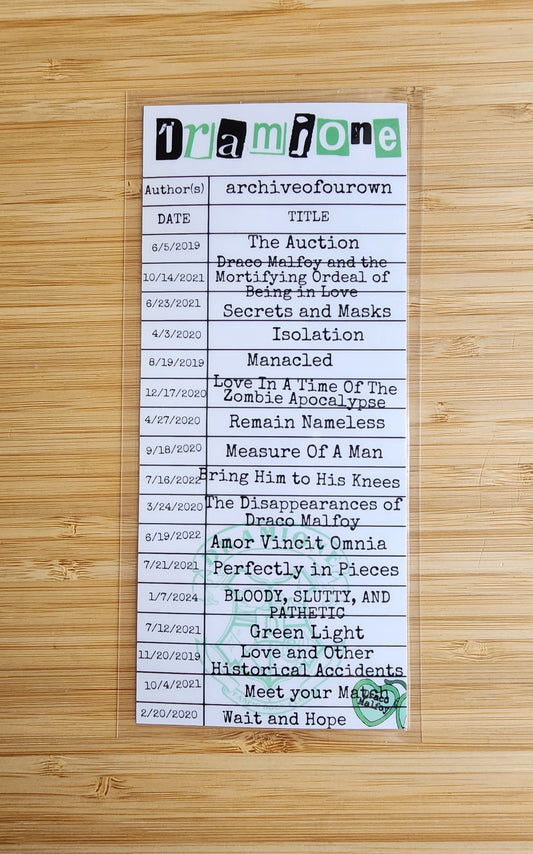 Dramione
Author(s) archiveofourown
DATE TITLE
6/5/2019 The Auction
Draco Malfoy and the
10/14/2021 Mortifying Ordeal of
Being in Love
6/23/2021 Secrets and Masks
4/3/2020 Isolation
8/19/2019 Manacled
12/17/2020 Love In A Time Of The
Zombie Apocalypse
4/27/2020 Remain Nameless
9/18/2020 Measure Of A Man
7/16/2022 Bring Him to His Knees
3/24/2020 The Disappearances of
Draco Malfoy
6/19/2022 Amor Vincit Omnia
7/21/2021 Perfectly in Pieces
1/7/2024 BLOODY, SLUTTY, AND
PATHETIC
7/12/2021 Green Light
11/20/2019 Love and Other
Historical Accidents
10/4/2021 Meet your Match
Draco
Malfoy
2/20/2020 Wait and Hope